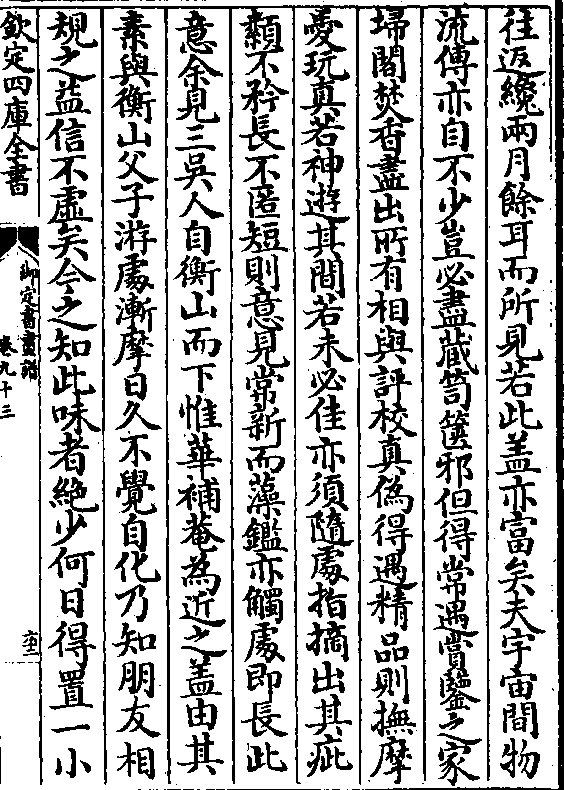 往返纔兩月餘耳而所見若此盖亦富矣夫宇宙間物
流傳亦自不少豈必盡蔵笥篋邪但得常遇賞鑒之家
埽閣焚香盡出所有相與評校真偽得遇精品則撫摩
愛玩真若神遊其間若未必佳亦須隨處指摘出其疵
纇不矜長不匿短則意見常新而藻鑑亦觸處即長此
意余見三吳人自衡山而下惟華補菴為近之盖由其
素與衡山父子游處漸摩日久不覺自化乃知朋友相
規之益信不虛矣今之知此味者絶少何日得置一小
欽定四庫全書
御定書畫譜
卷九十三